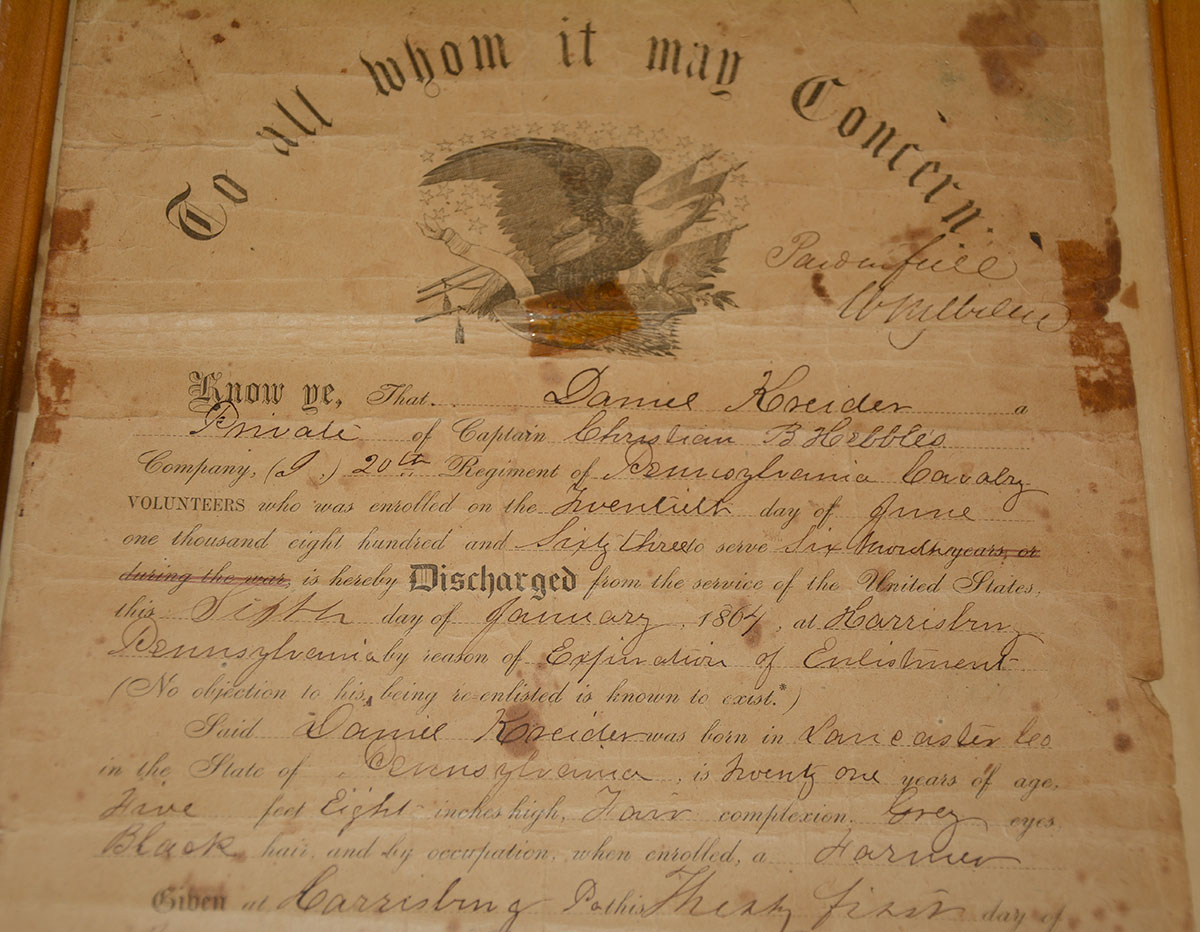 To all whom it may Concern.
Know ye, That Daniel Kreider a
Private of Captain Christian B Hebbles
Company, (I.) 20th Regiment of Pennsylvania Cavalry
VOLUNTEERS who was enrolled on the Twentieth day of June
one thousand eight hundred and Sixty three to serve Six Months years, or
during the war, is hereby Discharged from the service of the United States,
this Sixth day of January, 1864, at Harrisburg
Pennsylvania by reason of Expiration of Enlistment
(No objection to his being re-enlisted is known to exist.*)
Said Daniel Kreider was born in Lancaster Co
in the State of Pennsylvania, is twenty one years of age,
Five feet Eight inches high, Fair complexion, Grey eyes,
Black hair, and by occupation, when enrolled, a Farmer
Given at Harrisburg Pa this Thirty first day of